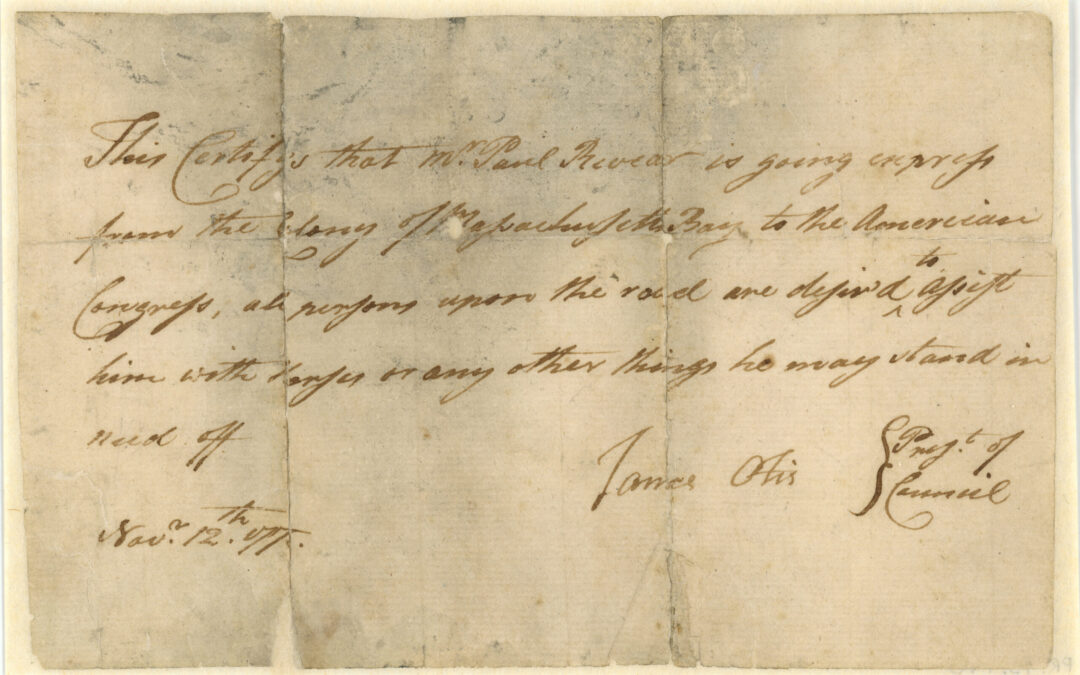 This Certifys that Mr. Paul Revear is going express
from the Colony of Massachussetts Bay to the American
Congress, all persons upon the road are desir'd to assist
him with horses or any other things he may stand in
need off
James Otis { Presj.t of
Council
Novr. 12th. 1775.